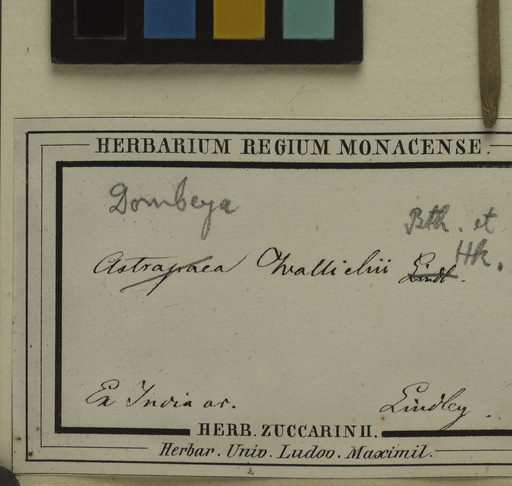 HERBARIUM REGIUM MONACENSE.
Dombeya
Bth. et
Hk.
Astrapaea Wallichii Lindl.
Ex India or.
Lindley
HERB. ZUCCARINII.
Herbar. Univ. Ludov. Maximil.